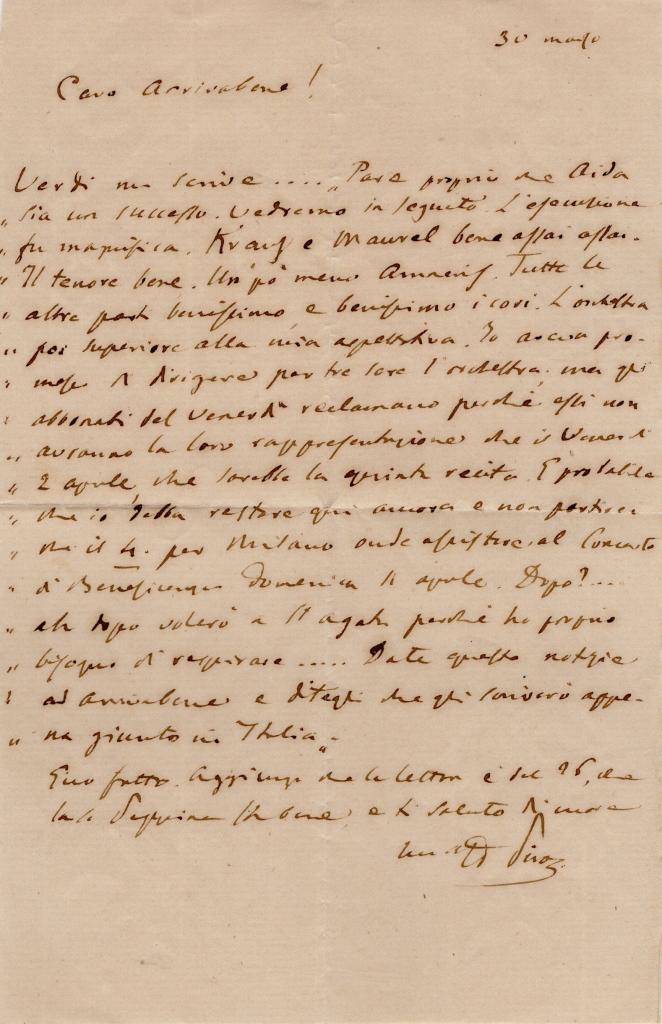 30 marzo
Caro Arrivabene!
Verdi mi scrive .... „Pare proprio che Aida
„ sia un successo. Vedremo in seguito. L'esecuzione
„ fu magnifica. Krauss e Maurel bene assai assai.
„ Il tenore bene. Un pò meno Amneris. Tutte le
„ altre parti benissimo e benissimo i cori. L'orchestra
„ poi superiore alla mia aspettativa. Io aveva pro-
„ messo di dirigere per tre sere l'orchestra, ma gli
„ abbonati del Venerdì reclamano perchè essi non
„ avranno la loro rappresentazione che il Venerdì
„ 2 aprile, che sarebbe la quinta recita. È probabile
„ che io debba restare qui ancora e non partirei
„ che il 4. per Milano onde assistere al Concerto
„ di Beneficenza Domenica 11 aprile. Dopo?...
„ eh dopo volerò a St Agata perchè ho proprio
„ bisogno di respirare ..... Date queste notizie
„ ad Arrivabene e ditegli che gli scriverò appe-
„ na giunto in Italia„.
Ecco fatto. Aggiungo che la lettera è del 26, che
la Sa Peppina sta bene, e ti saluto di cuore